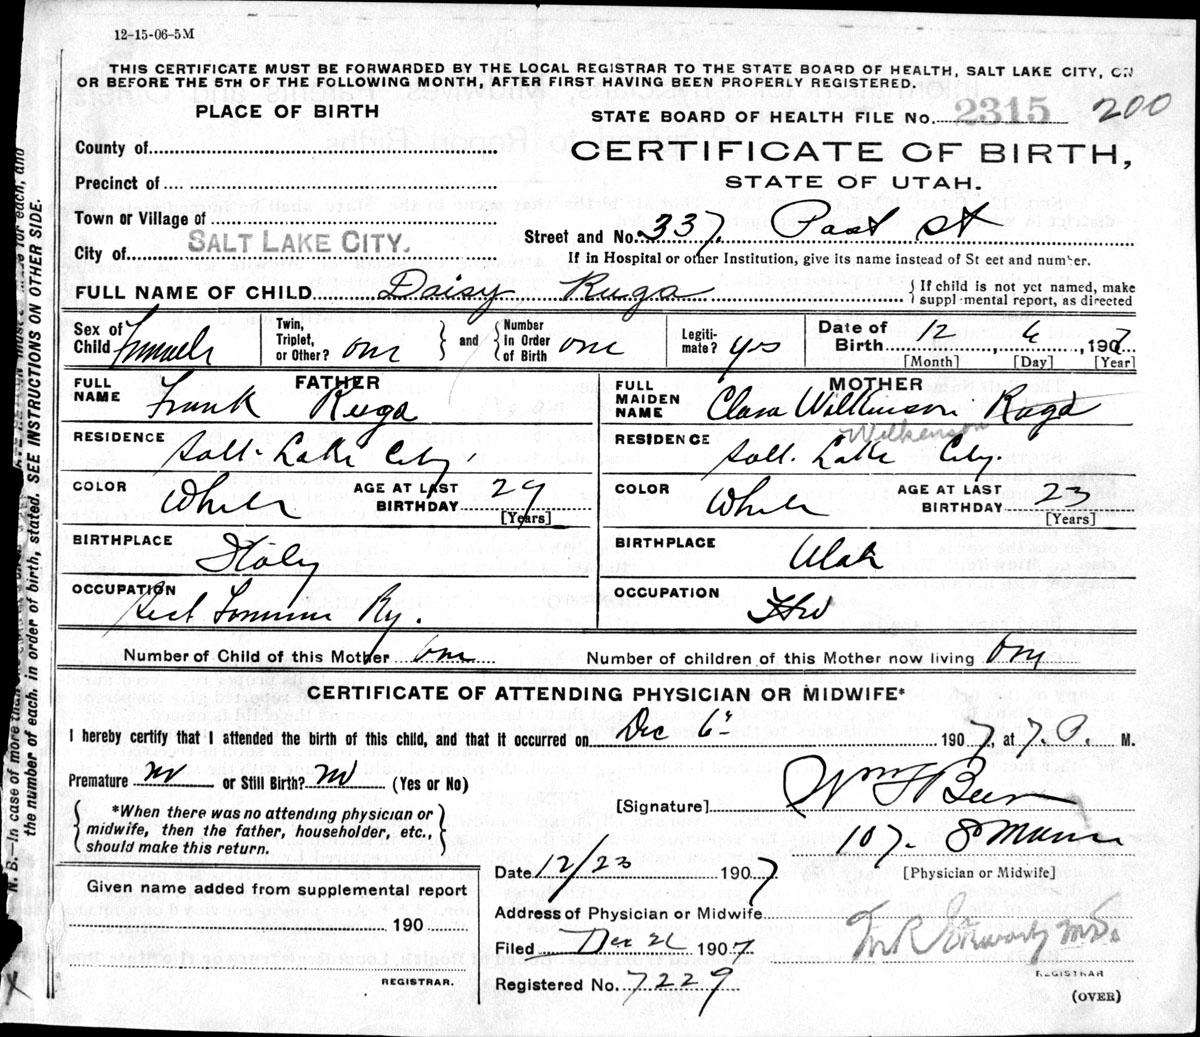 12-15-06-5M
THIS CERTIFICATE MUST BE FORWARDED BY THE LOCAL REGISTRAR TO THE STATE BOARD OF HEALTH, SALT LAKE CITY, ON
OR BEFORE THE 5TH OF THE FOLLOWING MONTH, AFTER FIRST HAVING BEEN PROPERLY REGISTERED.
PLACE OF BIRTH
STATE BOARD OF HEALTH FILE No. 2315 200
County of
CERTIFICATE OF BIRTH,
Precinct of
STATE OF UTAH.
Town or Village of
Street and No. 337. Post St
City of SALT LAKE CITY.
If in Hospital or other Institution, give its name instead of St eet and number.
FULL NAME OF CHILD Daisy Ruga { If child is not yet named, make
suppl mental report, as directed
Sex of Child Female
Twin, Triplet, or Other? one } and { Number in Order of Birth one
Legiti-mate? yes
Date of Birth 12, 6, 1907
[Month] [Day] [Year]
FATHER
FULL NAME Frank Ruga
MOTHER
FULL MAIDEN NAME Clara Wilkinson Ruga
Wilkenson
RESIDENCE Salt Lake City.
RESIDENCE Salt Lake City.
COLOR White AGE AT LAST BIRTHDAY 29 [Years]
COLOR White AGE AT LAST BIRTHDAY 23 [Years]
BIRTHPLACE Italy
BIRTHPLACE Utah
OCCUPATION Sect Ry.
OCCUPATION Hw
Number of Child of this Mother one Number of children of this Mother now living one
CERTIFICATE OF ATTENDING PHYSICIAN OR MIDWIFE*
I hereby certify that I attended the birth of this child, and that it occurred on Dec 6" 1907, 7 P. M.
Premature? no or Still Birth? no (Yes or No)
[Signature] Wm F Beer
{ *When there was no attending physician or
midwife, then the father, householder, etc.,
should make this return. }
107. So Main
Date 12/23 1907
[Physician or Midwife]
Given name added from supplemental report
190
Address of Physician or Midwife
Filed Dec 26 1907
REGISTRAR.
Registered No. 7229
REGISTRAR
(OVER)
N. B.—In case of more than
the number of each, in order of birth, stated. SEE INSTRUCTIONS ON OTHER SIDE.